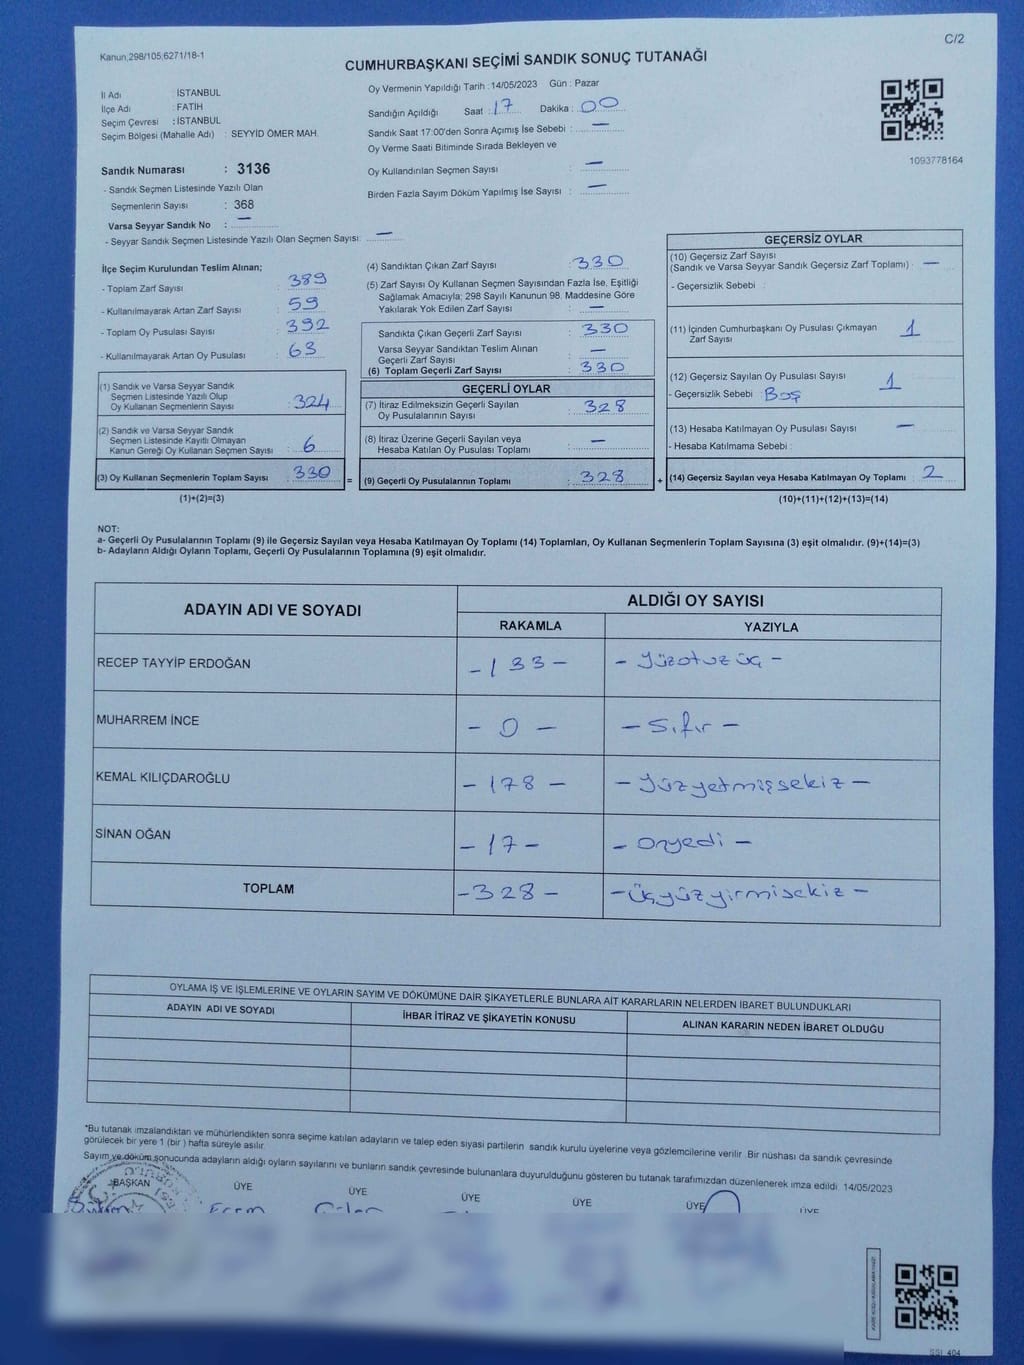 C/2
Kanun.298/105;6271/18-1
CUMHURBAŞKANI SEÇİMİ SANDIK SONUÇ TUTANAĞI
İl Adı : İSTANBUL
İlçe Adı : FATİH
Seçim Çevresi : İSTANBUL
Seçim Bölgesi (Mahalle Adı) : SEYYİD ÖMER MAH.
Sandık Numarası : 3136
- Sandık Seçmen Listesinde Yazılı Olan
Seçmenlerin Sayısı : 368
Varsa Seyyar Sandık No : —
- Seyyar Sandık Seçmen Listesinde Yazılı Olan Seçmen Sayısı: —
Oy Vermenin Yapıldığı Tarih : 14/05/2023 Gün : Pazar
Sandığın Açıldığı Saat : 17 Dakika : 00
Sandık Saat 17:00'den Sonra Açımış İse Sebebi : —
Oy Verme Saati Bitiminde Sırada Bekleyen ve
Oy Kullandırılan Seçmen Sayısı —
Birden Fazla Sayım Döküm Yapılmış İse Sayısı : —
1093778164
İlçe Seçim Kurulundan Teslim Alınan;
- Toplam Zarf Sayısı : 389
- Kullanılmayarak Artan Zarf Sayısı : 59
- Toplam Oy Pusulası Sayısı : 392
- Kullanılmayarak Artan Oy Pusulası : 63
(1) Sandık ve Varsa Seyyar Sandık
Seçmen Listesinde Yazılı Olup
Oy Kullanan Seçmenlerin Sayısı : 324
(2) Sandık ve Varsa Seyyar Sandık
Seçmen Listesinde Kayıtlı Olmayan
Kanun Gereği Oy Kullanan Seçmen Sayısı : 6
(3) Oy Kullanan Seçmenlerin Toplam Sayısı : 330
(1)+(2)=(3)
=
(4) Sandıktan Çıkan Zarf Sayısı : 330
(5) Zarf Sayısı Oy Kullanan Seçmen Sayısından Fazla İse, Eşitliği
Sağlamak Amacıyla; 298 Sayılı Kanunun 98. Maddesine Göre
Yakılarak Yok Edilen Zarf Sayısı : —
Sandıkta Çıkan Geçerli Zarf Sayısı : 330
Varsa Seyyar Sandıktan Teslim Alınan
Geçerli Zarf Sayısı : —
(6) Toplam Geçerli Zarf Sayısı : 330
GEÇERLİ OYLAR
(7) İtiraz Edilmeksizin Geçerli Sayılan
Oy Pusulalarının Sayısı : 328
(8) İtiraz Üzerine Geçerli Sayılan veya
Hesaba Katılan Oy Pusulası Toplamı : —
(9) Geçerli Oy Pusulalarının Toplamı : 328
+
GEÇERSİZ OYLAR
(10) Geçersiz Zarf Sayısı
(Sandık ve Varsa Seyyar Sandık Geçersiz Zarf Toplamı) : —
- Geçersizlik Sebebi :
(11) İçinden Cumhurbaşkanı Oy Pusulası Çıkmayan
Zarf Sayısı : 1
(12) Geçersiz Sayılan Oy Pusulası Sayısı : 1
- Geçersizlik Sebebi : Boş
(13) Hesaba Katılmayan Oy Pusulası Sayısı : —
- Hesaba Katılmama Sebebi :
(14) Geçersiz Sayılan veya Hesaba Katılmayan Oy Toplamı : 2
(10)+(11)+(12)+(13)=(14)
NOT:
a- Geçerli Oy Pusulalarının Toplamı (9) ile Geçersiz Sayılan veya Hesaba Katılmayan Oy Toplamı (14) Toplamları, Oy Kullanan Seçmenlerin Toplam Sayısına (3) eşit olmalıdır. (9)+(14)=(3)
b- Adayların Aldığı Oyların Toplamı, Geçerli Oy Pusulalarının Toplamına (9) eşit olmalıdır.
ADAYIN ADI VE SOYADI
ALDIĞI OY SAYISI
RAKAMLA YAZIYLA
RECEP TAYYİP ERDOĞAN - 133 - - Yüzotuzüç -
MUHARREM İNCE - 0 - - Sıfır -
KEMAL KILIÇDAROĞLU - 178 - - Yüzyetmişsekiz -
SİNAN OĞAN - 17 - - Onyedi -
TOPLAM - 328 - - Üçyüzyirmisekiz -
OYLAMA İŞ VE İŞLEMLERİNE VE OYLARIN SAYIM VE DÖKÜMÜNE DAİR ŞİKAYETLERLE BUNLARA AİT KARARLARIN NELERDEN İBARET BULUNDUKLARI
ADAYIN ADI VE SOYADI İHBAR İTİRAZ VE ŞİKAYETİN KONUSU ALINAN KARARIN NEDEN İBARET OLDUĞU
*Bu tutanak imzalandıktan ve mühürlendikten sonra seçime katılan adayların ve talep eden siyasi partilerin sandık kurulu üyelerine veya gözlemcilerine verilir. Bir nüshası da sandık çevresinde
görülecek bir yere 1 (bir) hafta süreyle asılır.
Sayım ve döküm sonucunda adayların aldığı oyların sayılarını ve bunların sandık çevresinde bulunanlara duyurulduğunu gösteren bu tutanak tarafımızdan düzenlenerek imza edildi. 14/05/2023
BAŞKAN ÜYE ÜYE ÜYE ÜYE ÜYE ÜYE
SSI 404